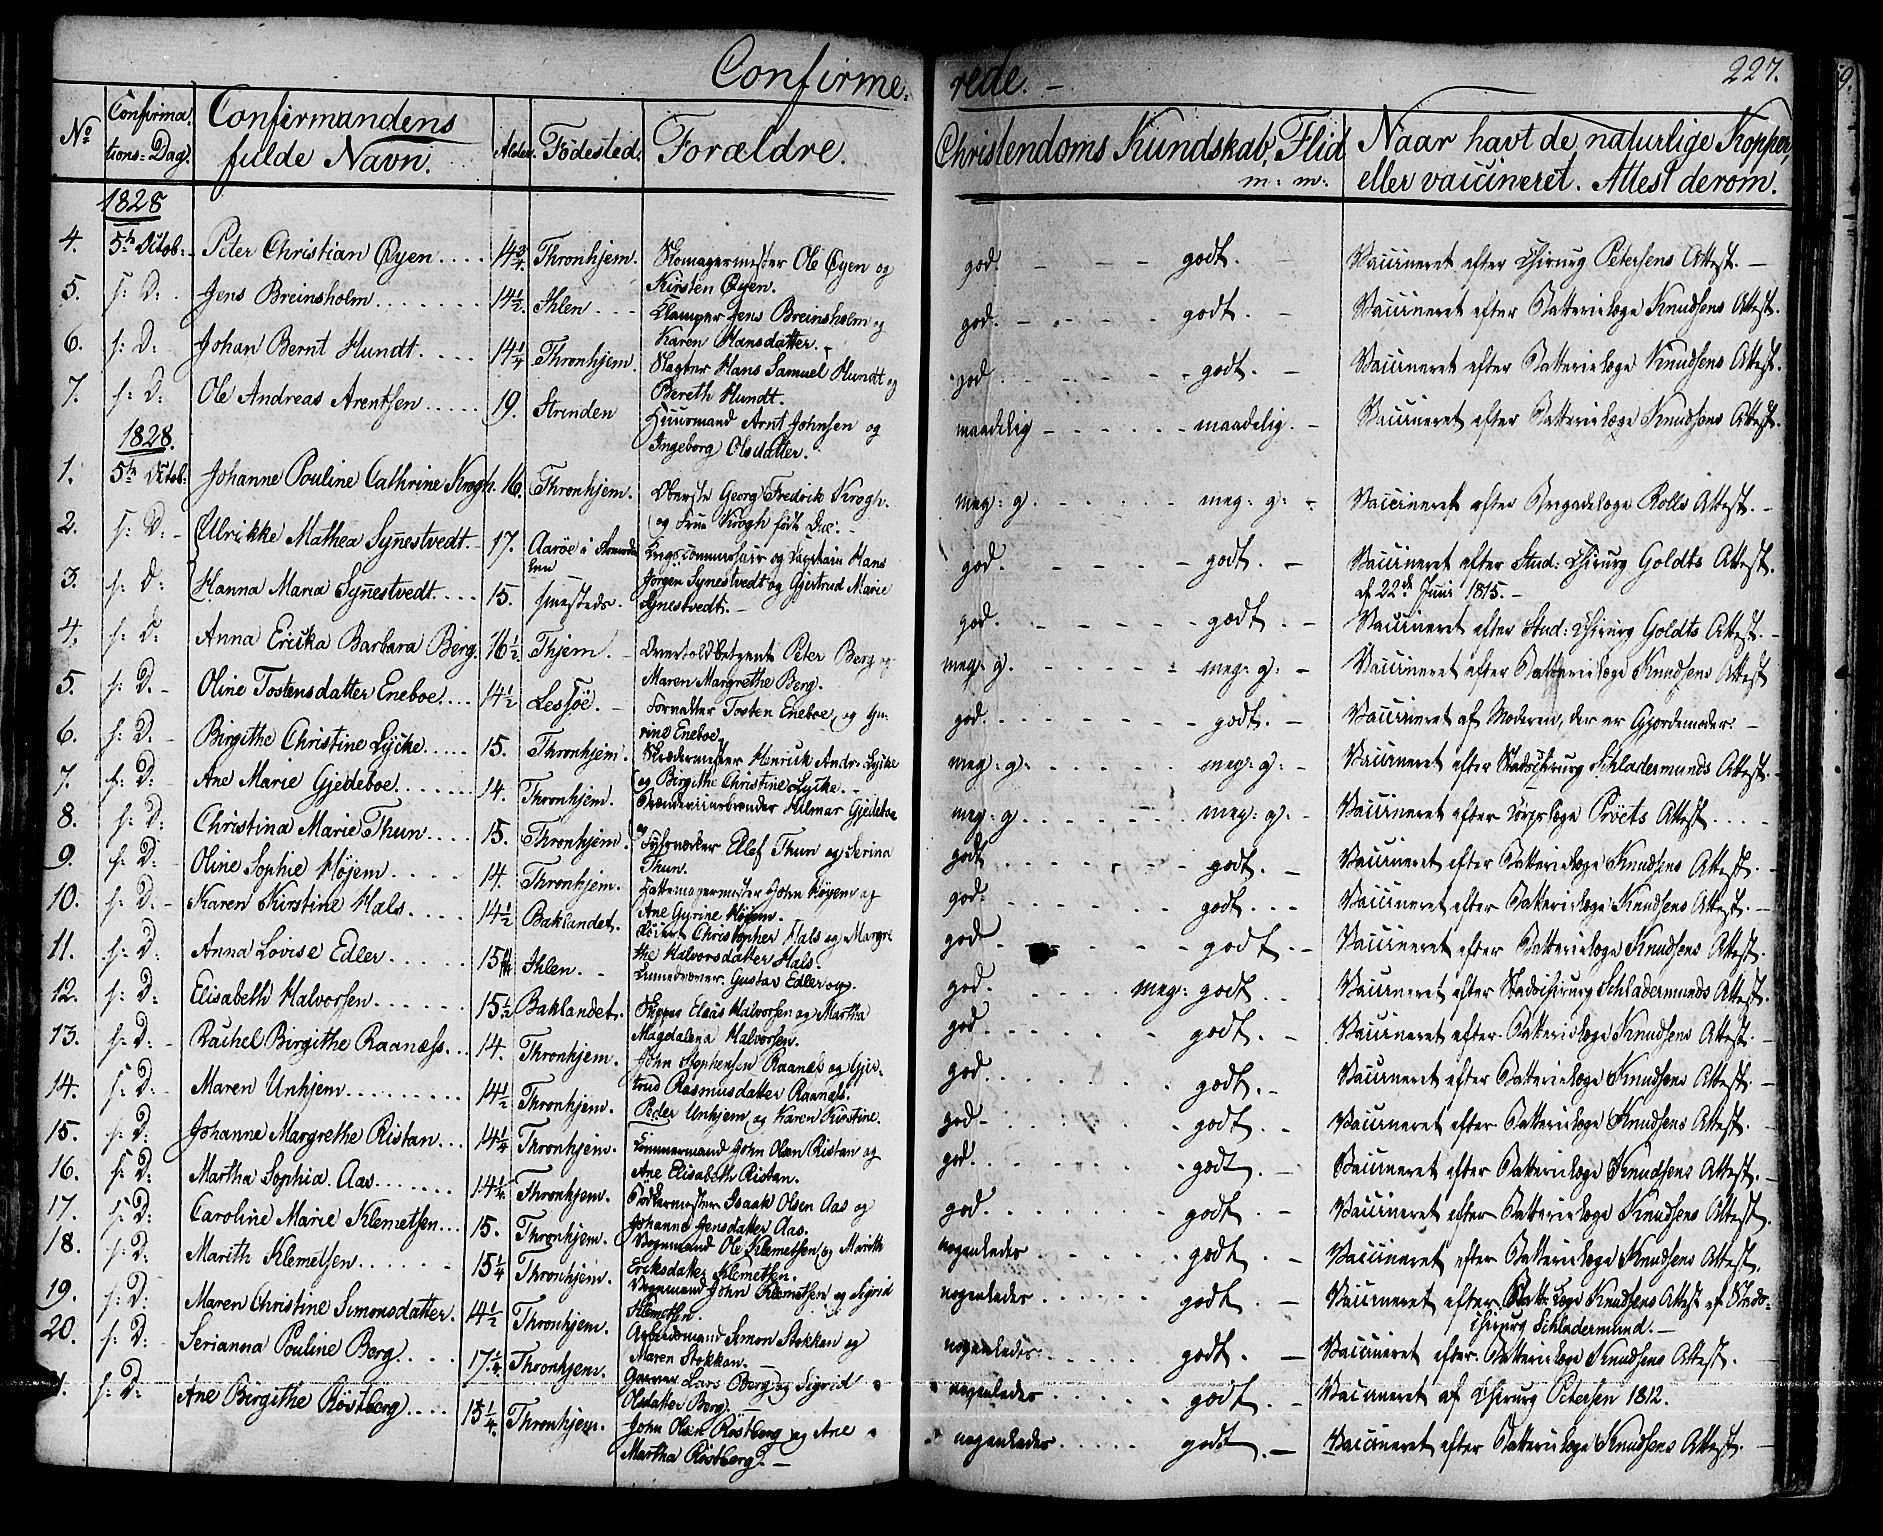 Confirmerede. –
227.
No | Confirmations-Dag. | Confirmandens fulde Navn. | Alder. | Födested. | Forældre. | Christendoms Kundskab, Flid m: m: | Naar havt de naturlige Kopper, eller vaccineret. Attest derom.
1828
4. 5te Octob: Peter Christian Øyen 14 3/4. Thronhjem. Skomagermester Ole Øyen og Kirsten Øyen. god. godt. Vaccineret efter Chirurg Petersens Attest. –
5. s: D: Jens Breinsholm 14 1/2. Ihlen Klamper Jens Breinsholm og Karen Hansdatter. god. godt. Vaccineret efter Batterielæge Knudsens Attest.
6. s: D: Johan Bernt Hundt 14 1/4 Thronhjem. Slagter Hans Samuel Hundt og Bereth Hundt. god. godt. Vaccineret efter Batterielæge Knudsens Attest.
7. s: D: Ole Andreas Arentsen 19. Strinden Huusmand Arnt Johnsen og Ingeborg Olsdatter. maadelig maadelig. Vaccineret efter Batterielæge Knudsens Attest.
1828.
1. 5te Octob: Johanne Pouline Cathrine Krogh. 16. Thronhjem. Oberste Georg Fredrik Krogh. og Frue Krogh født meg: g. meg: g: Vaccineret efter Brigadelæge Rolls Attest.
2. s: D: Ulrikke Mathea Synestvedt. 17. Aaröe i Krigscommissair og Capitain Hans god. godt. Vaccineret efter Stud: Chirurg Goldts Attest. af 22de Juni 1815. –
3. s: D: Hanna Maria Synestvedt. 15. smesteds. Jörgen Synestvedt og Gjertrud Marie Synestvedt. god. godt. Vaccineret efter Stud: Chirurg Goldts Attest.
4. s: D: Anna Ericka Barbara Berg. 16 1/2 Thjem. Overtoldbetjent Peter Berg og Maren Margrethe Berg. meg: g. meg: g: Vaccineret efter Batterielæge Knudsens Attest
5. s: D: Oline Tostensdatter Eneboe. 14 1/2 Lessöe. Tosten Eneboe og Gurine Eneboe. god. godt. Vaccineret af Moderen, der er Gjordemoder. –
6. s: D: Birgithe Christine Lycke. 15. Thronhjem. Skrædermester Henrick Andr: Lycke og Birgithe Christine Lycke. meg: g: meg: g: Vaccineret efter Stadschirurg Schladermunds Attest.
7. s: D: Ane Marie Gjedeboe. 14. Thronhjem. Brændeviinsbrænder Hilmar Gjedeboe og meg: g meg: g: Vaccineret efter Corpslæge Pröets Attest.
8. s: D: Christina Marie Thun 15. Thronhjem. Ellef Thun og Serina Thun. godt godt. Vaccineret efter Batterielæge Knudsens Attest.
9. s: D: Oline Sophie Höjem 14. Thronhjem. Hattemagermester John Höyem og Ane Gyrine Höjem. god. godt. Vaccineret efter Batterielæge Knudsens Attest.
10. s: D: Karen Kirstine Hals 14 1/2 Baklandet. Christopher Hals og Margrethe Halvorsdatter Hals. god. godt. Vaccineret efter Batterielæge Knudsens Attest.
11. s: D: Anna Lovise Edler 15 Ihlen. Gustav Edler og. god. meg: godt. Vaccineret efter Stadschirurg Schladermunds Attest.
12. s: D: Elisabeth Halvorsen 15 1/2 Baklandet. Skipper Elias Halvorsen og Martha Magdalena Halvorsen. god. godt. Vaccineret efter Batterielæge Knudsens Attest.
13. s: D: Rachel Birgithe Raanæss 14. Thronhjem. John Stephensen Raanæs og Gjertrud Rasmusdatter Raanæs. god. godt. Vaccineret efter Batterielæge Knudsens Attest.
14. s: D: Maren Unhjem 14 1/2 Thronhjem. Peder Unhjem og Karen Kirstine. god. godt. Vaccineret efter Batterielæge Knudsens Attest.
15. s: D: Johanne Margrethe Ristan 14 1/4 Thronhjem. Tömmermand John Olsen Ristan og Ane Elisabeth Ristan. god. godt. Vaccineret efter Batterielæge Knudsens Attest.
16. s: D: Martha Sophia Aas 14 1/4 Thronhjem. Bödkermester Isaak Olsen Aas og Johanna Jensdatter Aas. god. godt. Vaccineret efter Batterielæge Knudsens Attest.
17. s: D: Caroline Marie Klemetsen 15. Thronhjem. Vognmand Ole Klemetsen og Marith Eriksdatter Klemetsen. nogenledes godt. Vaccineret efter Batterielæge Knudsens Attest.
18. s: D: Marith Klemetsen 15 1/4 Thronhjem. Vognmand John Klemetsen og Sigrid Klemetsen. nogenledes godt. Vaccineret efter Batt: Læge Knudsens Attest af Stadschirurg Schladermund. –
19. s: D: Maren Christine Simonsdatter. 14 1/2 Thronhjem. Arbeidsmand Simon Stokkan og Maren Stokkan. nogenledes godt. Vaccineret efter Batterielæge Knudsens Attest.
20. s: D: Serianna Pouline Berg. 17 1/4 Thronhjem. Lars Berg og Sigrid Olsdatter Berg. nogenledes godt. Vaccineret af Chirurg Petersen 1812.
s: D: Ane Birgithe Röstberg 15 1/4. Thronhjem. John Olsen Rösberg og Ane Martha Rösberg. nogenledes godt. Vaccineret efter Batterielæge Knudsens Attest.